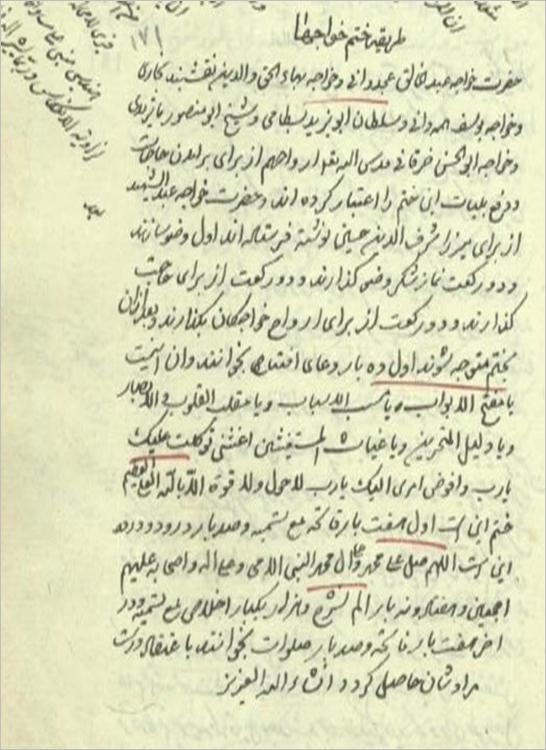 طریقه ختم خواجها
۱۷۱
حضرت خواجه عبد الخالق غجدوانی و خواجه بهاء الحق والدین نقشبند بخاری
و خواجه یوسف همدانی و سلطان ابو یزید بسطامی و شیخ ابو منصور ماتریدی
و خواجه ابو الحسن خرقانی قدس الله تعالی ارواحهم از برای برآمدن حاجات
و دفع بلیات این ختم را اعتبار کرده اند و حضرت خواجه عبد الشهید
از برای میرزا شرف الدین حسینی نوشته فرستاده اند اول وضو سازند
و دو رکعت نماز شکر وضو گذارند و دو رکعت از برای حاجت
گذارند و دو رکعت از برای ارواح خواجگان بگذارند و بعد از آن
بختم متوجه شوند اول ده بار دعای افتتاح بخوانند و آن اینست
یا مفتح الابواب و یا مسبب الاسباب و یا مقلب القلوب والابصار
و یا دلیل المتحیرین و یا غیاث المستغیثین اغثنی توکلت علیک
یارب وافوض امری الیک یارب لا حول ولا قوة الا بالله العلی العظیم
ختم این است اول هفت بار فاتحه مع تسمیه و صد بار درود و درود
این است اللهم صل علی محمد وعلی آل محمد النبی الامی وعلی اله واصحابه علیهم
اجمعین و هفتاد و نه بار الم نشرح و هزار و یکبار اخلاص مع تسمیه و در
اخر هفت بار فاتحه و صد بار صلوات بخوانند با عتقاد درست
مرادشان حاصل گردد انشاء الله العزیز